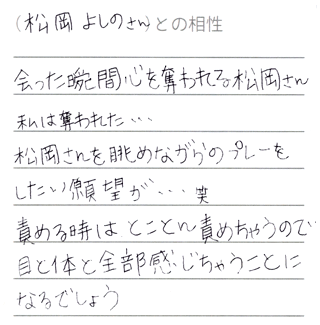 (松岡 よしのさん)との相性
会った瞬間心を奪われる松岡さん
私は奪われた・・・
松岡さんを眺めながらのプレーを
したい願望が・・・笑
責める時は とことん責めちゃうので
目と体と全部感じちゃうことに
なるでしょう